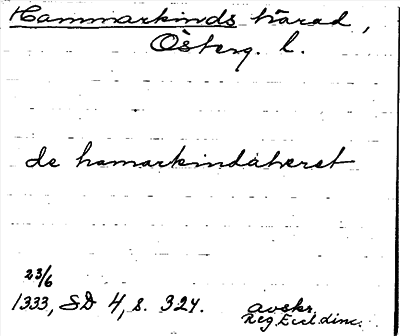 Hammarkinds härad,
Österg. l.
de hamarkindäheret
23/6
1333, SD 4, s. 324. avskr.
Reg. Eccl. Linc.